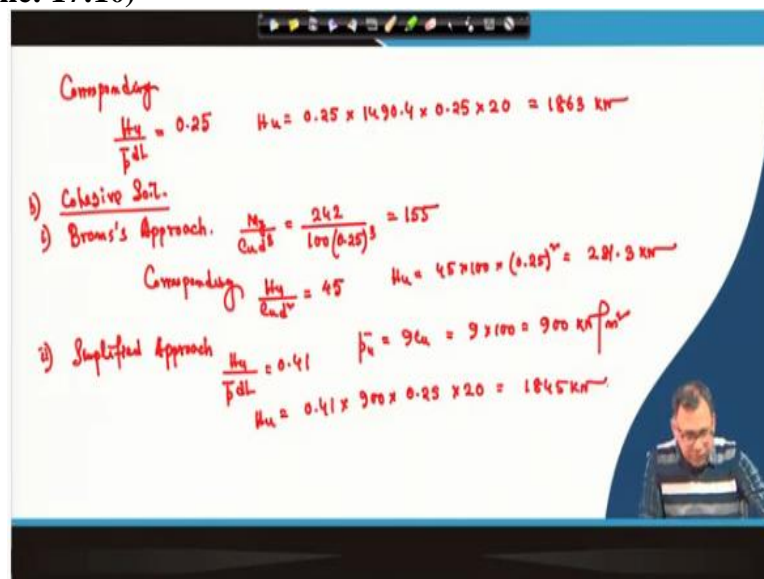 ne: 17:10)
Corresponding
Hu / p̄dL = 0.25 Hu = 0.25 x 1490.4 x 0.25 x 20 = 1863 KN
b) Cohesive Soil.
i) Broms's Approach. My / Cud³ = 242 / 100(0.25)³ = 155
Corresponding Hu / Cud² = 45 Hu = 45x100x(0.25)² = 281.3 KN
ii) Simplified Approach Hu / p̄dL = 0.41 p̄u = 9Cu = 9x100 = 900 KN/m²
Hu = 0.41 x 900 x 0.25 x 20 = 1845 KN.